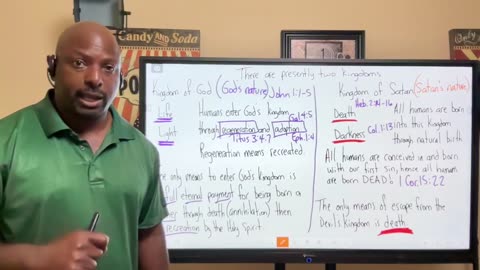 CANDY AND SODA
There are presently two Kingdoms
Kingdom of God (God's nature) John 1:1-5
Life
Light
Humans enter God's Kingdom
Gal 4:5
through regeneration and adoption
Titus 3:4-7 Eph. 1:4
Regeneration means recreated.
only means to enter God's Kingdom is
full eternal payment for being born a
through death (annihilation) then
recreation by the Holy Spirit.
Kingdom of Satan (Satan's nature)
Heb. 2:14-16
Death
Darkness
Col. 1:13
All humans are born
into this Kingdom
through natural birth
All humans are conceived and born
with our first sin, hence all humans
are born DEAD! 1 Cor. 15:22
The only means of escape from the
Devil's Kingdom is death.